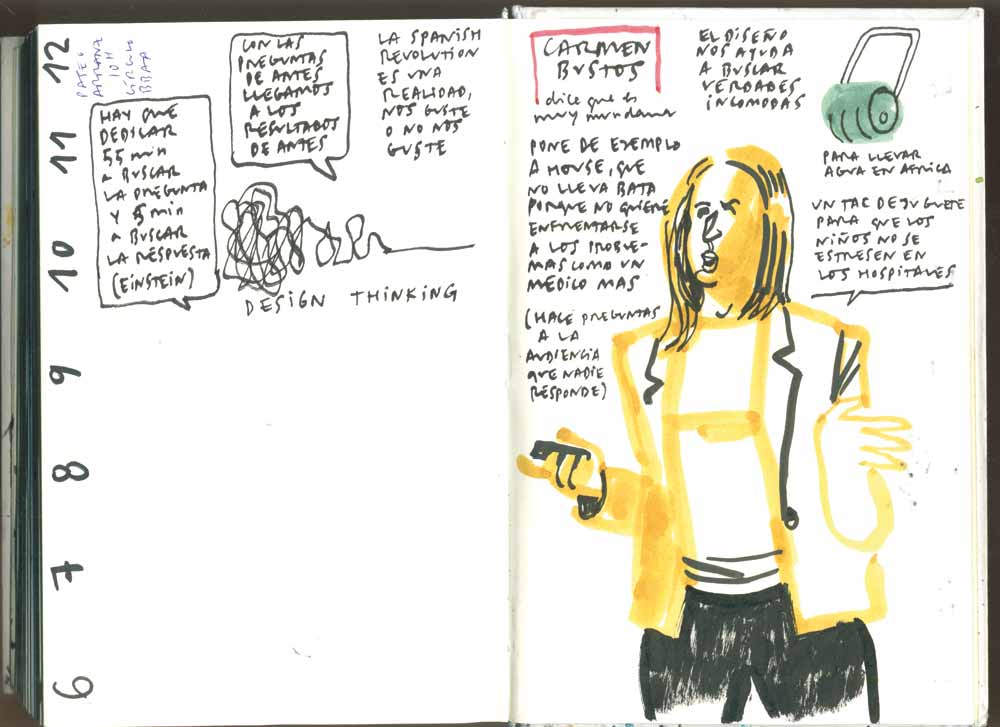 12
11
10
9
8
7
6
10 H
BBAA
HAY QUE
DEDICAR
55 min
a BUSCAR
LA PREGUNTA
Y 5 min
a BUSCAR
LA RESPUESTA
(EINSTEIN)
CON LAS
PREGUNTAS
DE ANTES
LLEGAMOS
A LOS
RESULTADOS
DE ANTES
LA SPANISH
REVOLUTION
ES UNA
REALIDAD,
NOS GUSTE
O NO NOS
GUSTE
DESIGN THINKING
CARMEN
BUSTOS
dice que es
muy mundana
PONE DE EJEMPLO
A HOUSE, QUE
NO LLEVA BATA
PORQUE NO QUIERE
ENFRENTARSE
A LOS PROBLE-
MAS COMO UN
MÉDICO MAS
(HACE PREGUNTAS
A LA
AUDIENCIA
QUE NADIE
RESPONDE)
EL DISEÑO
NOS AYUDA
A BUSCAR
VERDADES
INCOMODAS
PARA LLEVAR
AGUA EN AFRICA
UN TAC DE JUGUETE
PARA QUE LOS
NIÑOS NO SE
ESTRESEN EN
LOS HOSPITALES